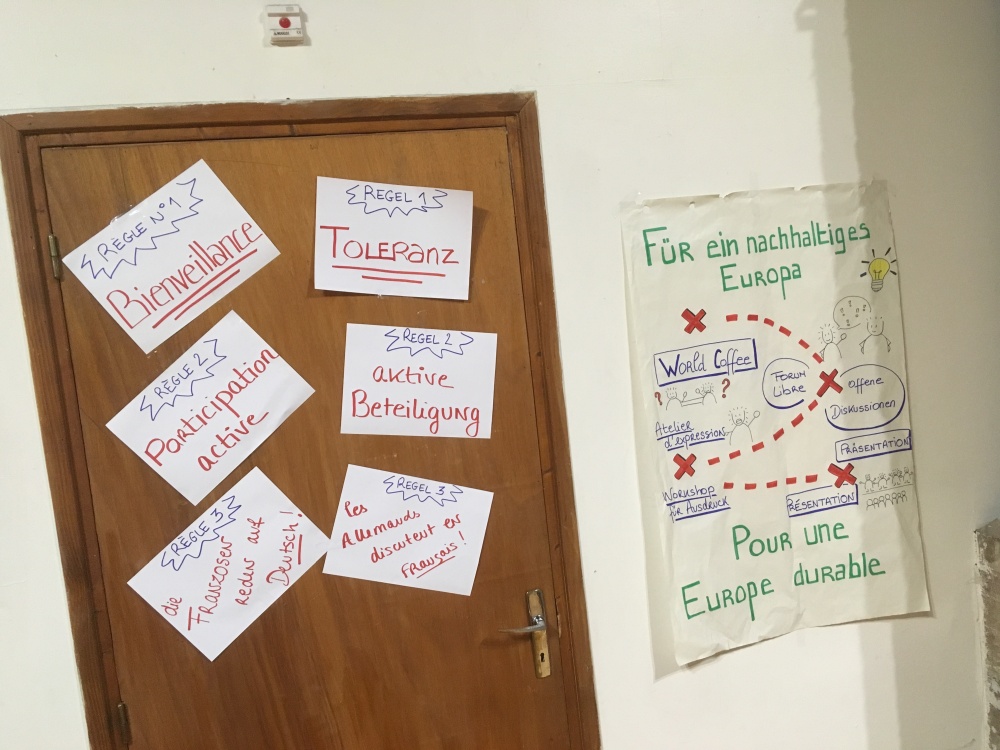 RÈGLE N°1
Bienveillance
REGEL 1
TOLERANZ
RÈGLE 2
Participation
active
REGEL 2
aktive
Beteiligung
RÈGLE 3
die
Franzosen
reden auf
Deutsch!
REGEL 3
les
Allemands
discutent en
Français!
FÜR ein nachhaltiges
Europa
WORLD COFFEE
? ?
FORUM
LIBRE
offene
DISKUSSIONEN
Atelier
d'expression
WORKSHOP
FÜR AUSDRUCK
PRÄSENTATION
PRÉSENTATION
POUR UNE
EUROPE durable